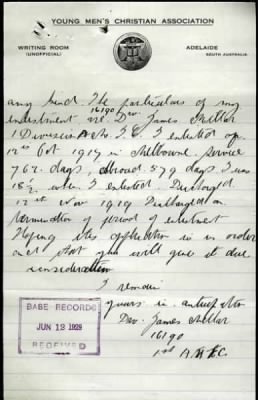 YOUNG MEN'S CHRISTIAN ASSOCIATION
WRITING ROOM
(UNOFFICIAL)
ADELAIDE
SOUTH AUSTRALIA
any kind. The particulars of my
16190
enlistment are. Dvr. James Mellar
1 Division I enlisted
12th Oct 1917 in Melbourne service
762 days, abroad 579 days I was
18½ when I enlisted. Discharged
12th Nov 1919 Discharged on
termination of period of enlistment
Hoping this application is in order
and that you will give it due
consideration
I remain
yours in anticipation
Dvr. James Mellar
16190
1st
BASE RECORDS
JUN 12 1929
RECEIVED